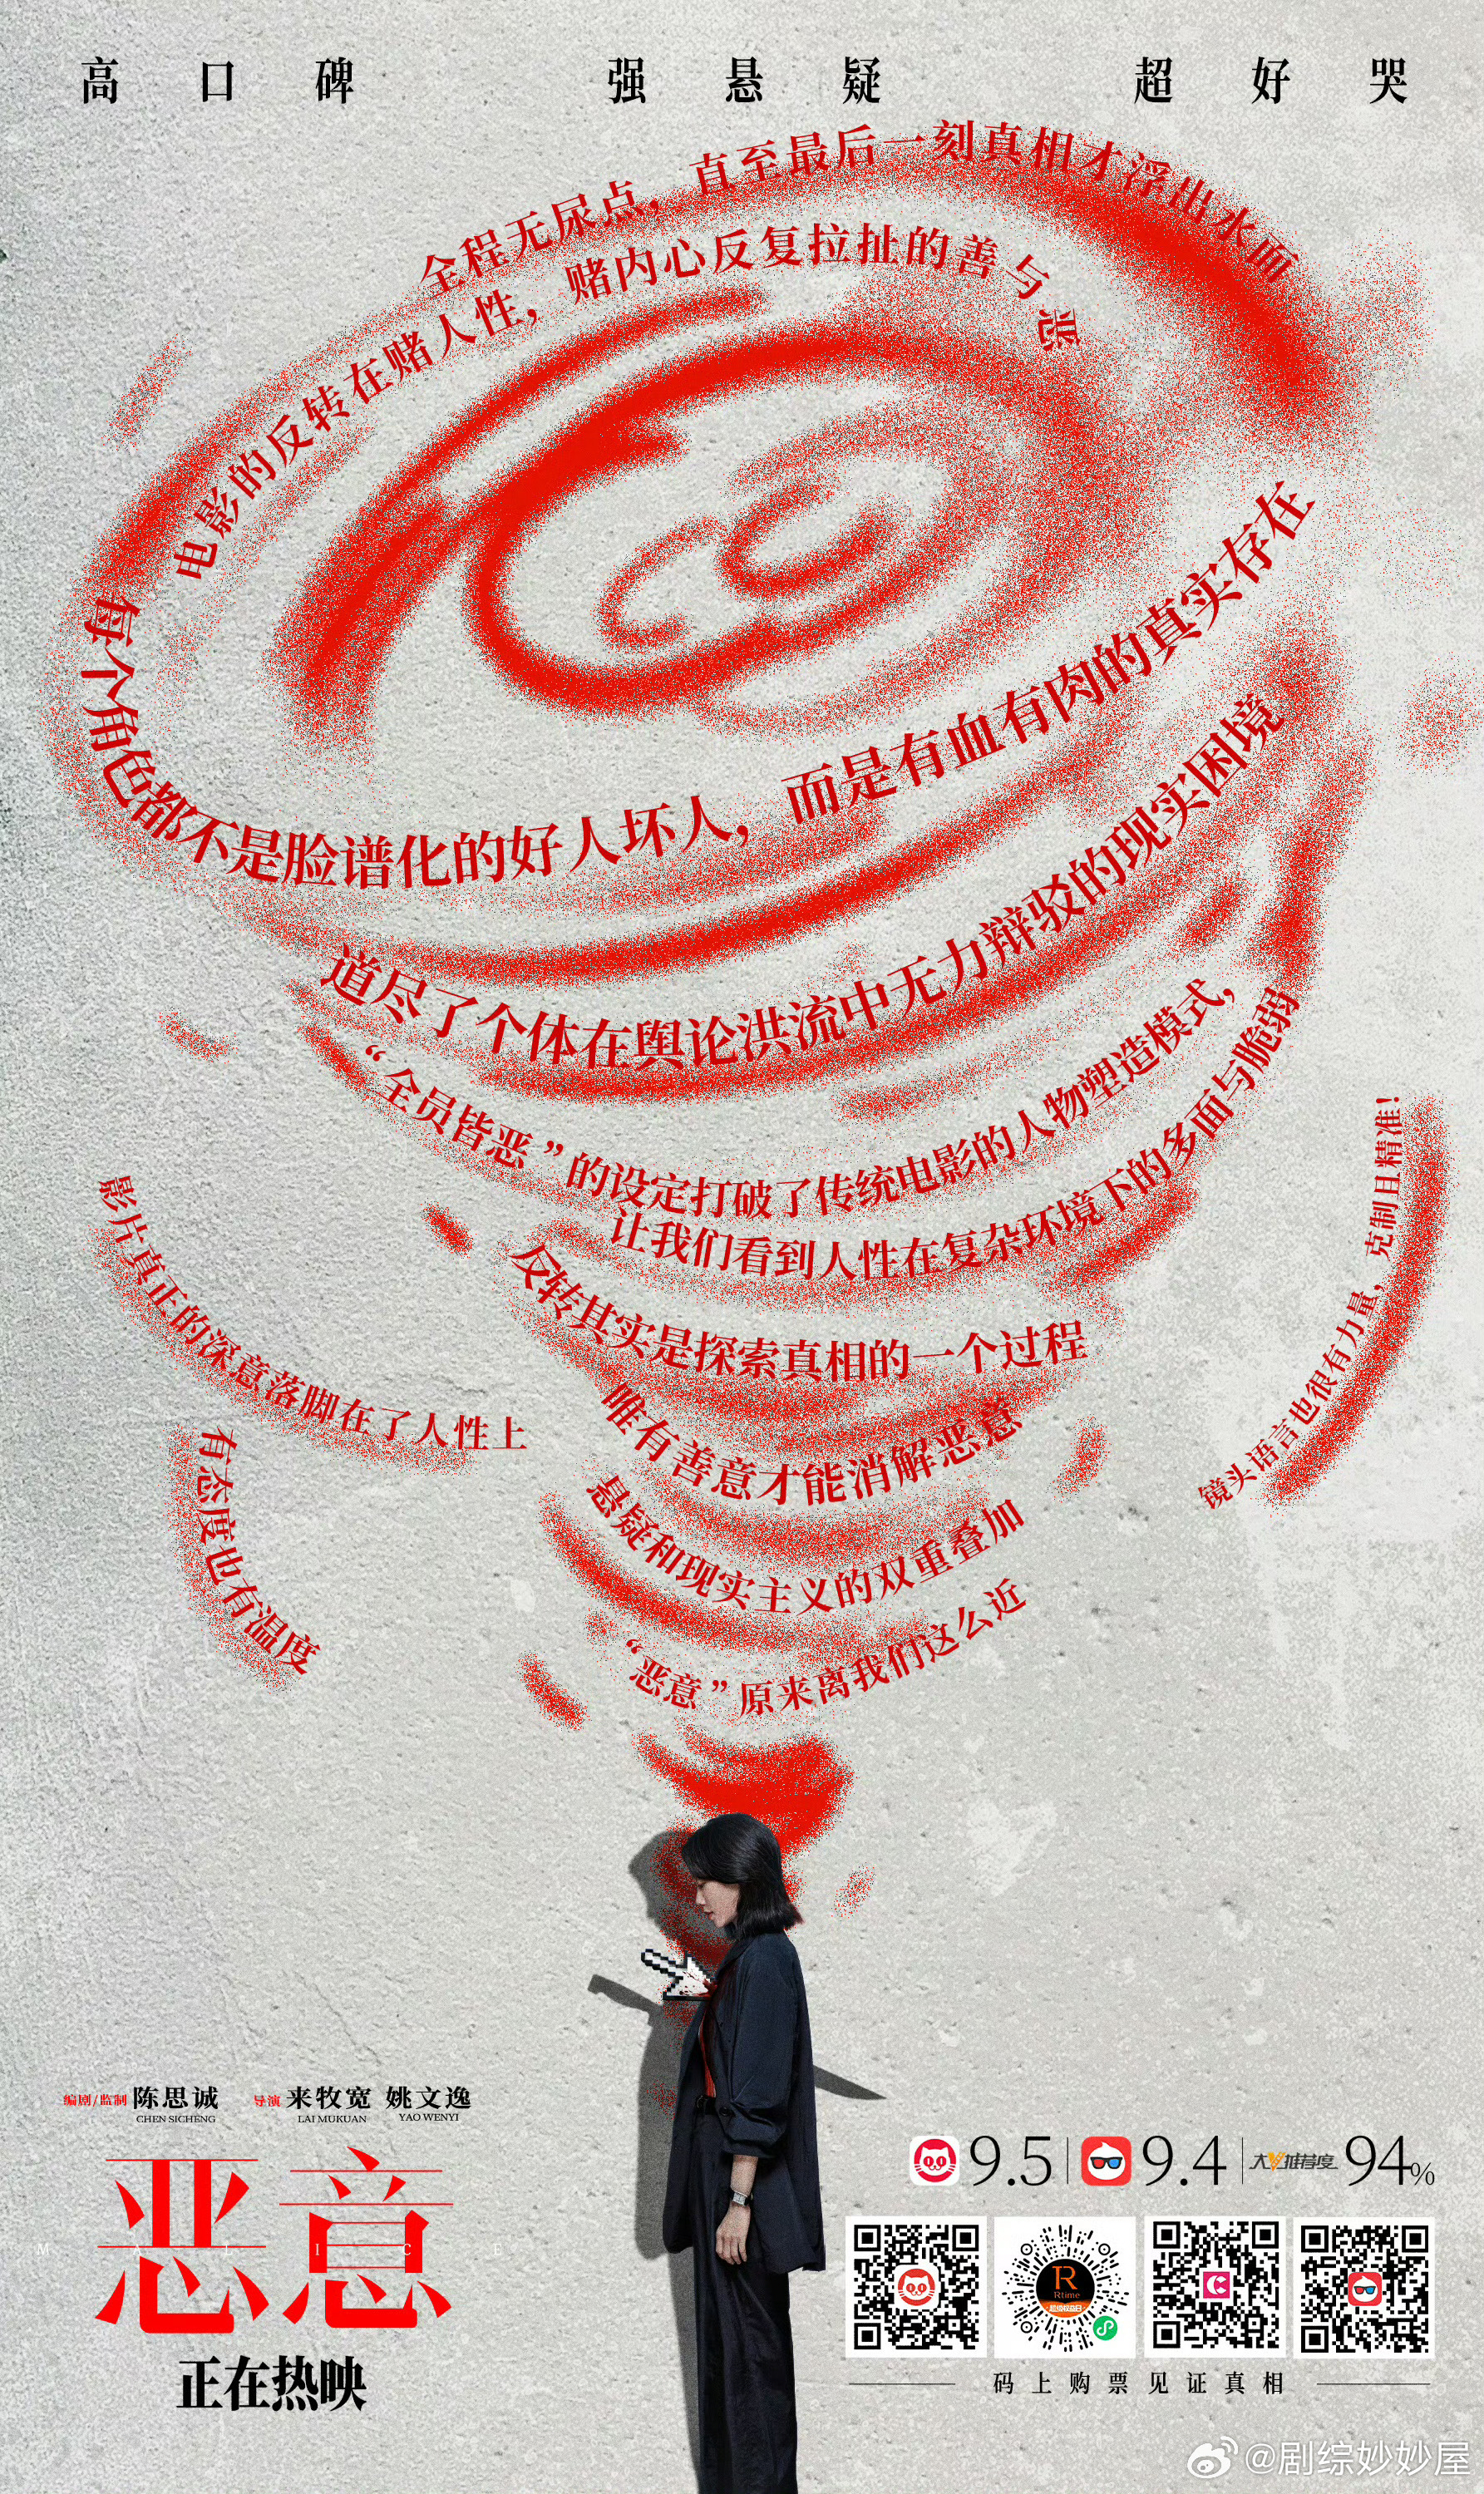 高口碑 强悬疑 超好哭
全程无尿点，直至最后一刻真相才浮出水面
电影的反转在赌人性，赌内心反复拉扯的善与恶
每个角色都不是脸谱化的好人坏人，而是有血有肉的真实存在
道尽了个体在舆论洪流中无力辩驳的现实困境
“全员皆恶”的设定打破了传统电影的人物塑造模式，
让我们看到人性在复杂环境下的多面与脆弱
镜头语言也很有力量，克制且精准！
影片真正的深意落脚在了人性上
反转其实是探索真相的一个过程
唯有善意才能消解恶意
有态度也有温度
悬疑和现实主义的双重叠加
“恶意”原来离我们这么近
编剧/监制 陈思诚 导演 来牧宽 姚文逸
CHEN SICHENG LAI MUKUAN YAO WENYI
恶意
MALICE
正在热映
9.5 9.4 大V推荐度 94%
R
Rtime
码上购票见证真相
@剧综妙妙屋